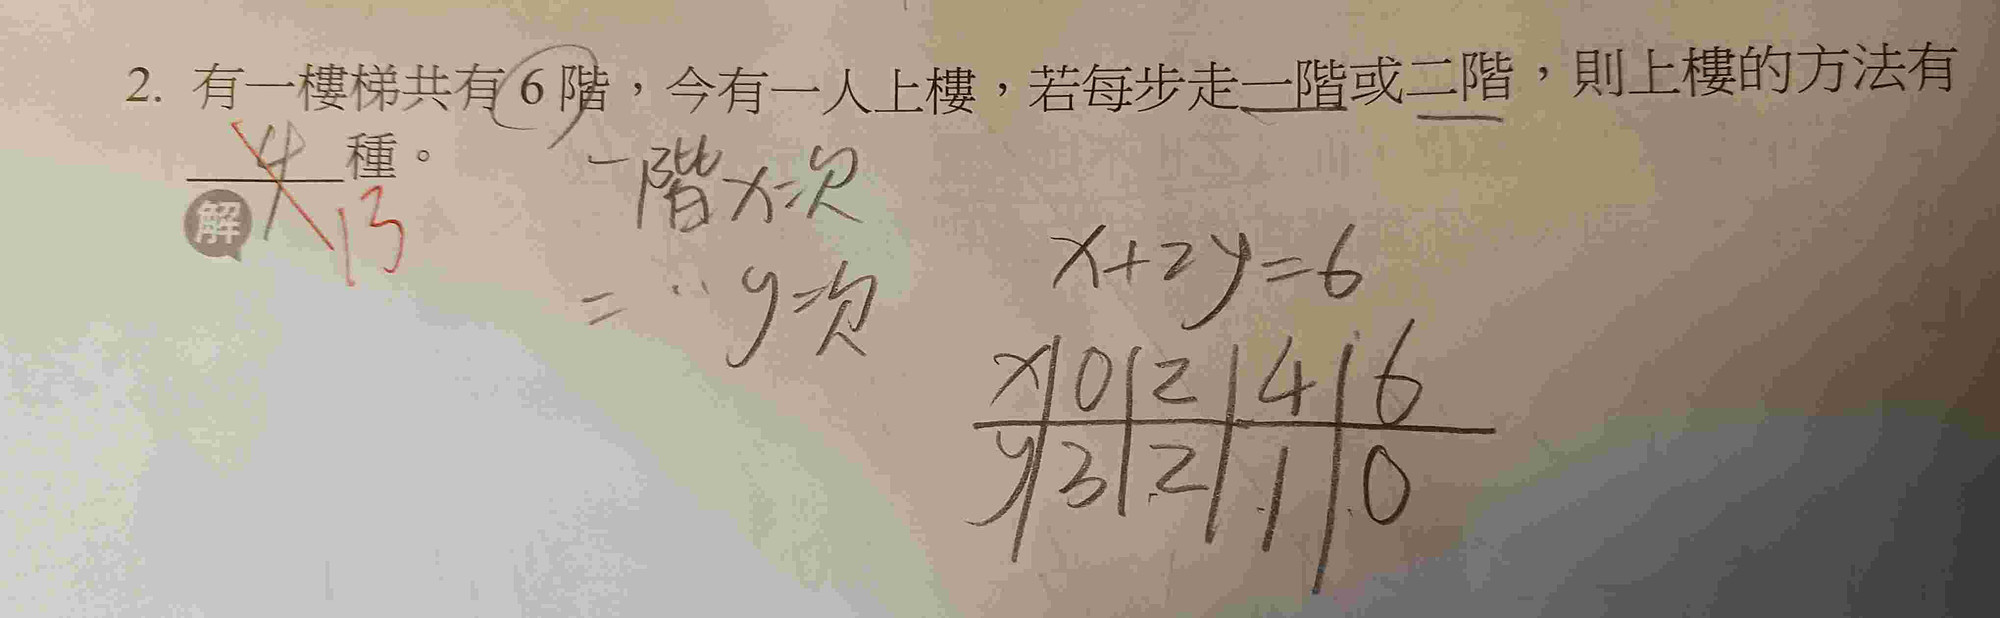 2. 有一樓梯共有6階，今有一人上樓，若每步走一階或二階，則上樓的方法有
4 種。
解
13
一階x次
二〃y次
x+2y=6
x 0 2 4 6
y 3 2 1 0